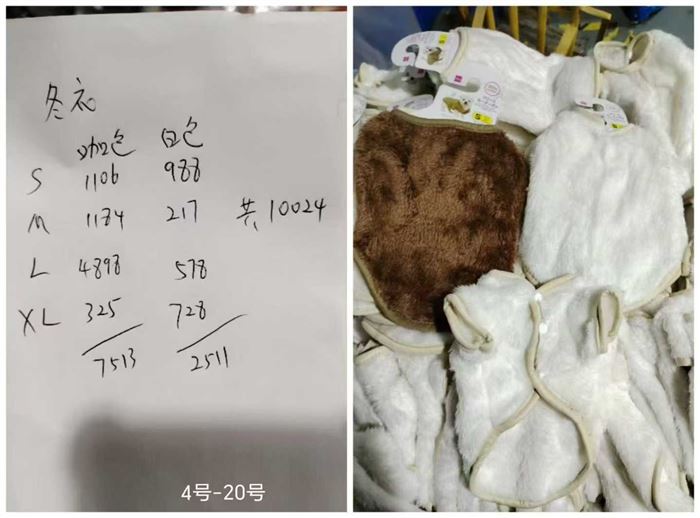 冬衣
咖色 白色
S 1106 988
M 1184 217 共10024
L 4898 578
XL 325 728
7513 2511
4号-20号